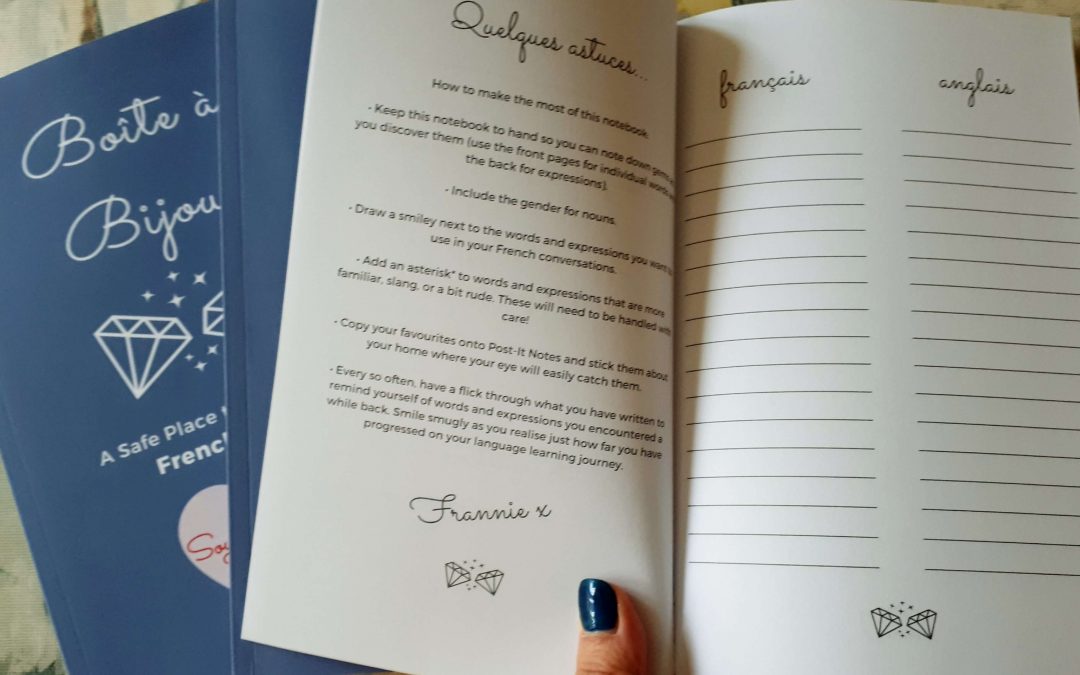 Boîte à
Bijou
A Safe Place
French
Soy
Quelques astuces...
How to make the most of this notebook.
• Keep this notebook to hand so you can note down gems as
you discover them (use the front pages for individual words
the back for expressions).
• Include the gender for nouns.
• Draw a smiley next to the words and expressions you want to
use in your French conversations.
• Add an asterisk* to words and expressions that are more
familiar, slang, or a bit rude. These will need to be handled with
care!
• Copy your favourites onto Post-It Notes and stick them about
your home where your eye will easily catch them.
• Every so often, have a flick through what you have written to
remind yourself of words and expressions you encountered a
while back. Smile smugly as you realise just how far you have
progressed on your language learning journey.
Frannie x
français
anglais